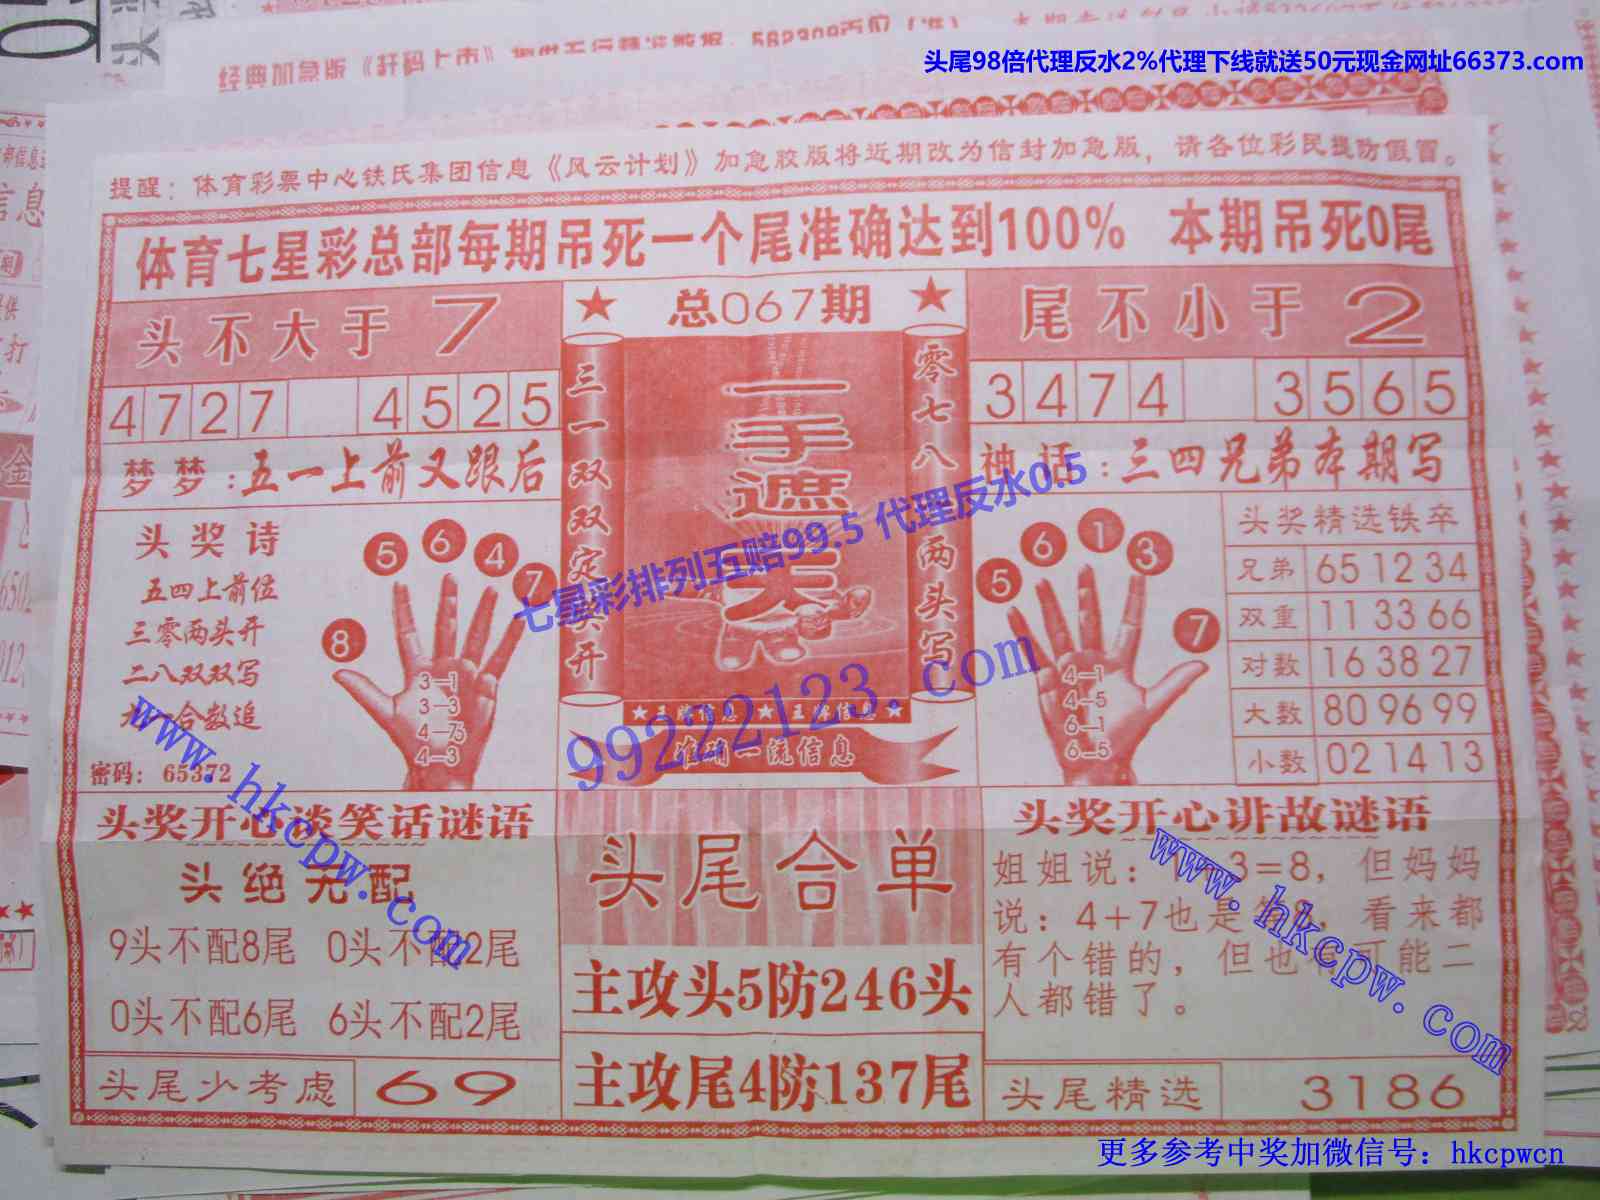 头尾98倍代理反水2%代理下线就送50元现金网址66373.com
经典加急版《轩码上市》
提醒：体育彩票中心铁氏集团信息《风云计划》加急胶版将近期改为信封加急版，请各位彩民提防假冒。
体育七星彩总部每期吊死一个尾准确达到100% 本期吊死0尾
头不大于7
4727 4525
梦梦：五一上前又跟后
头奖诗
五四上前位
三零两头开
二八双双写
合数追
密码：65372
8 5 6 4 7
3-1
3-3
4-75
4-3
总067期
三一双双定头开
一手遮天
零七八两头写
王牌信息 王牌信息
准确一流信息
尾不小于2
3474 3565
神话：三四兄弟本期写
5 6 1 3 7
4-1
4-5
6-1
6-5
头奖精选铁卒
兄弟 65 12 34
双重 11 33 66
对数 16 38 27
大数 80 96 99
小数 02 14 13
七星彩排列五赔99.5 代理反水0.5
99222123.com
www.hkcpw.com
www.hkcpw.com
头奖开心谈笑话谜语
头绝无配
9头不配8尾 0头不配2尾
0头不配6尾 6头不配2尾
头尾少考虑 69
头尾合单
主攻头5防246头
主攻尾4防137尾
头奖开心讲故谜语
姐姐说：3=8，但妈妈
说：4+7也是，看来都
有个错的，但也可能二
人都错了。
头尾精选 3186
更多参考中奖加微信号：hkcpwcn